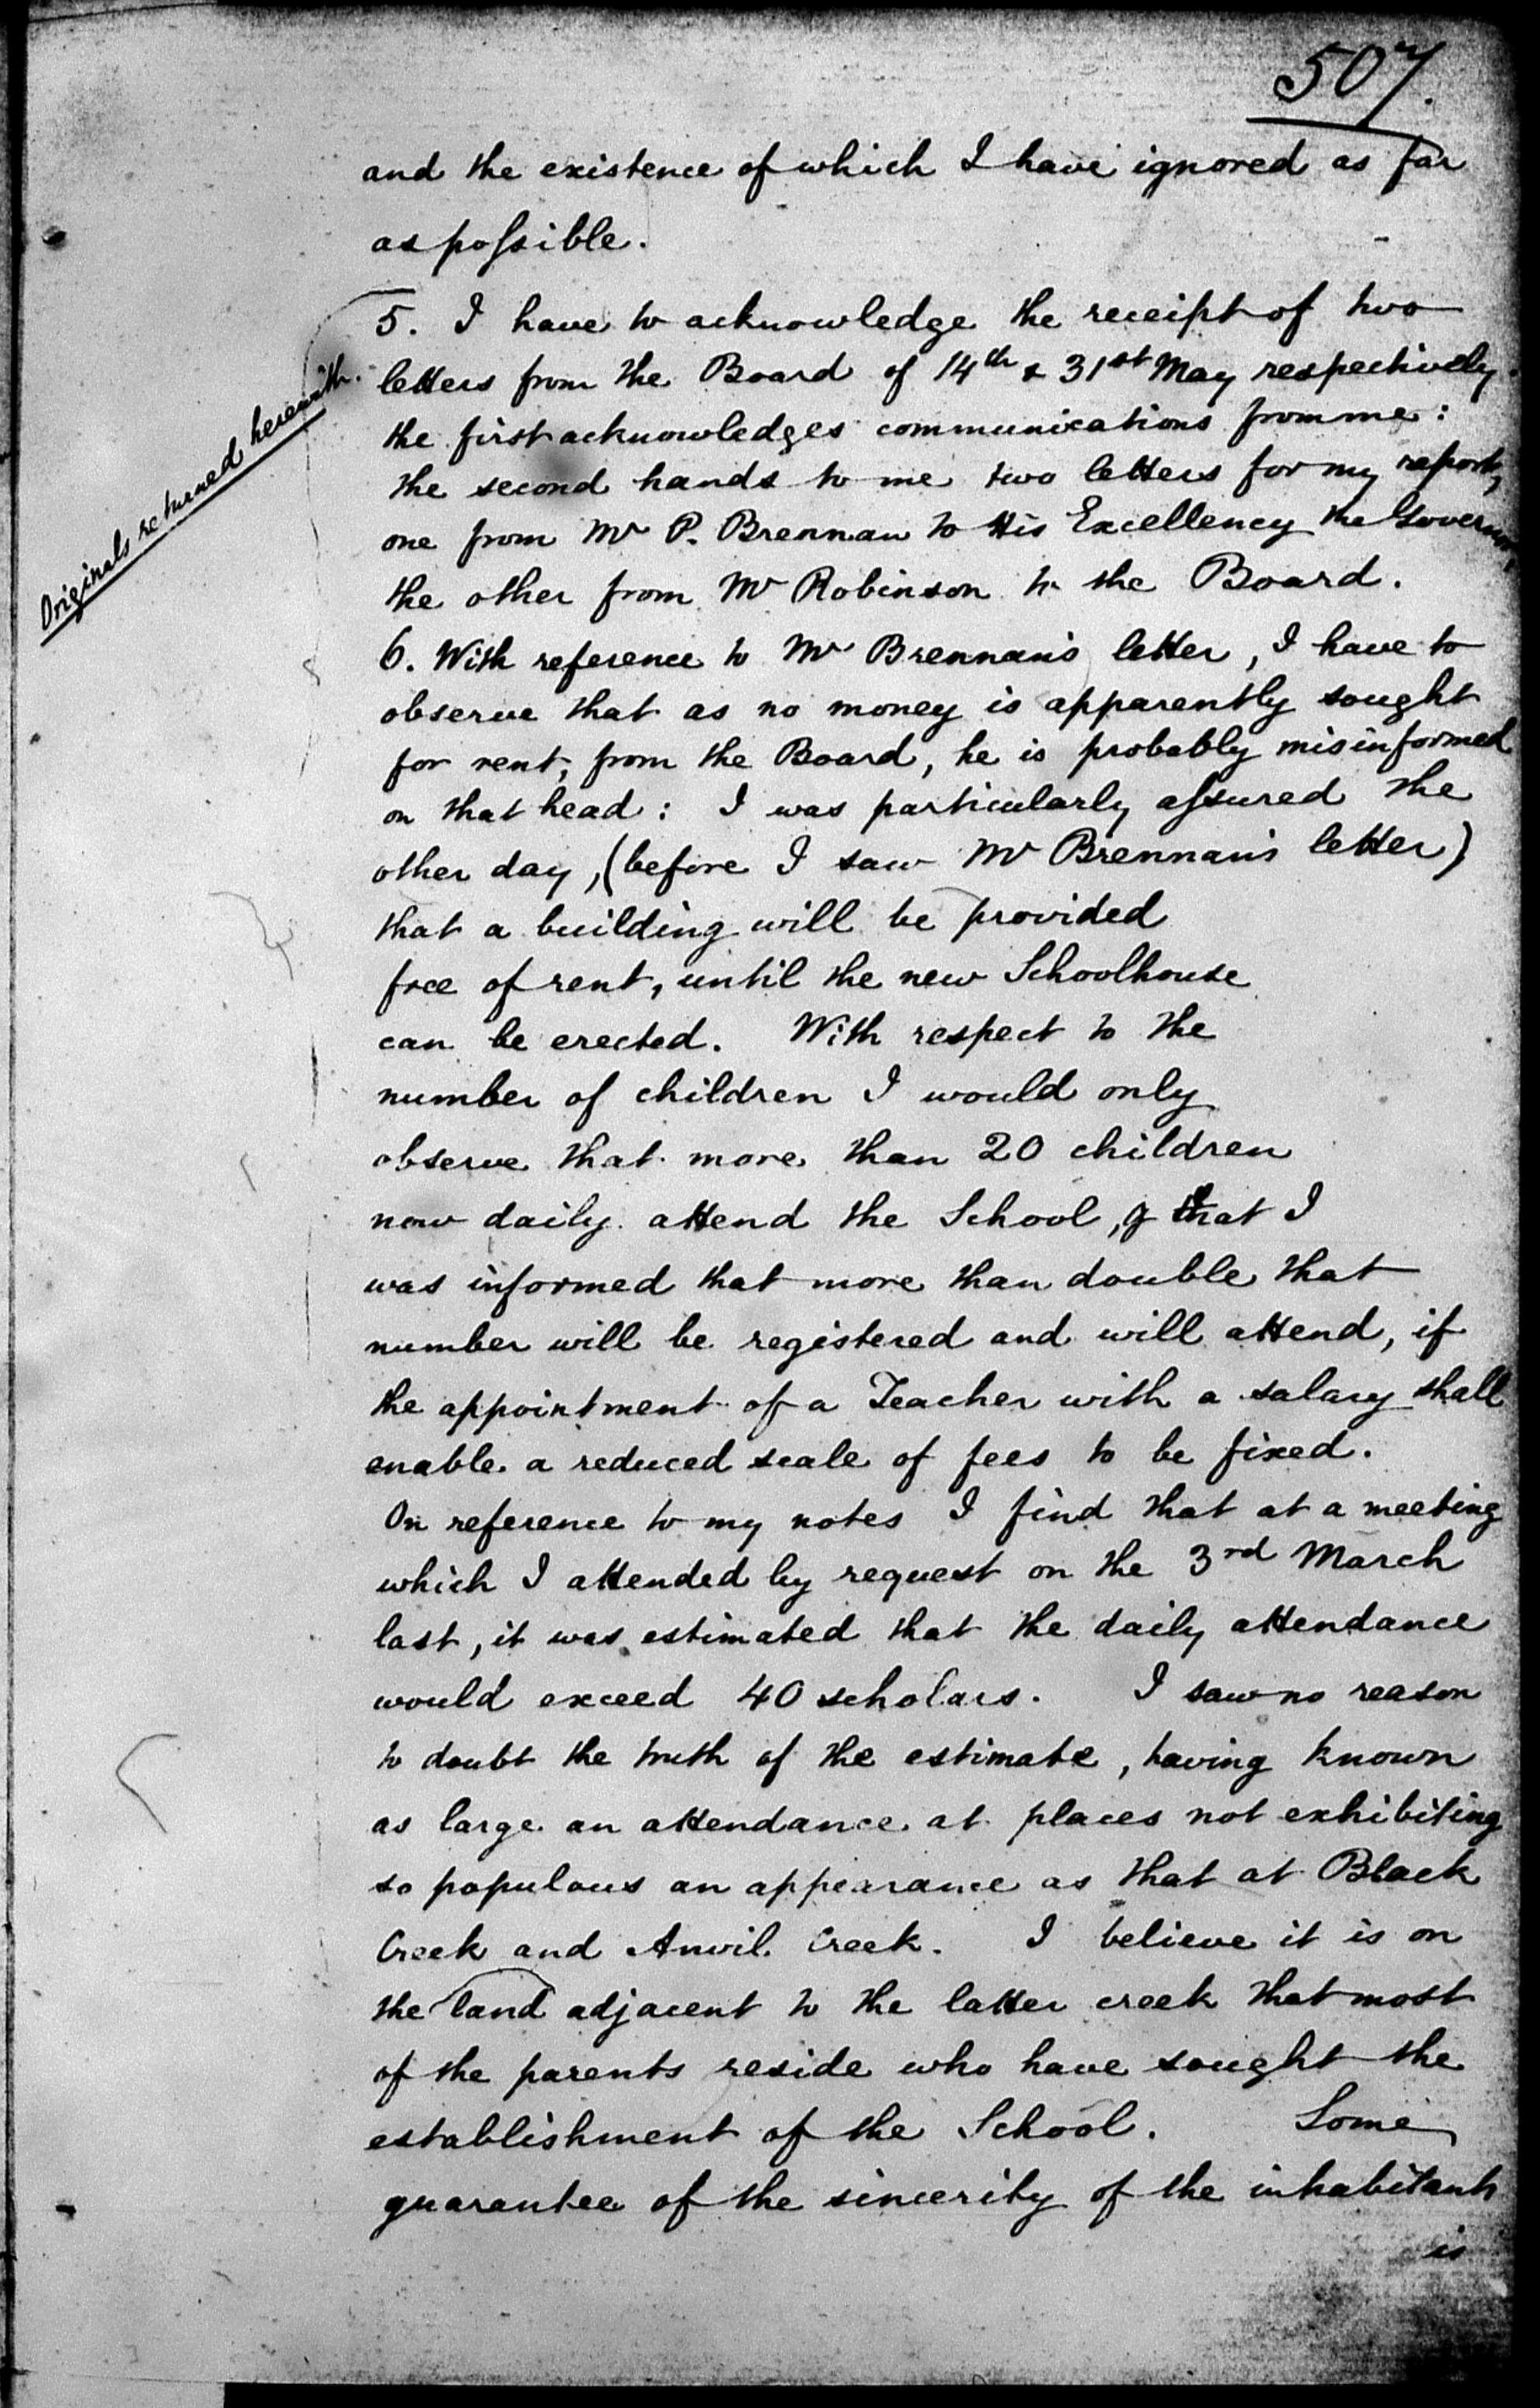 507.
and the existence of which I have ignored as far
as poſsible.
5. I have to acknowledge the receipt of two
letters from the Board of 14th & 31st May respectively.
the first acknowledges communications from me:
the second hands to me two letters for my report,
one from Mr P. Brennan to His Excellency the Governor,
the other from Mr Robinson to the Board.
Originals returned herewith.
6. With reference to Mr Brennan's letter, I have to
observe that as no money is apparently sought
for rent, from the Board, he is probably misinformed
on that head: I was particularly aſsured the
other day, (before I saw Mr Brennan's letter)
that a building will be provided
free of rent, until the new Schoolhouse
can be erected. With respect to the
number of children I would only
observe that more than 20 children
now daily attend the School, & that I
was informed that more than double that
number will be registered and will attend, if
the appointment of a Teacher with a salary shall
enable a reduced scale of fees to be fixed.
On reference to my notes I find that at a meeting
which I attended by request on the 3rd March
last, it was estimated that the daily attendance
would exceed 40 scholars. I saw no reason
to doubt the truth of the estimate, having known
as large an attendance at places not exhibiting
so populous an appearance as that at Black
Creek and Anvil Creek. I believe it is on
the land adjacent to the latter creek that most
of the parents reside who have sought the
establishment of the School. Some
guarantee of the sincerity of the inhabitants
is